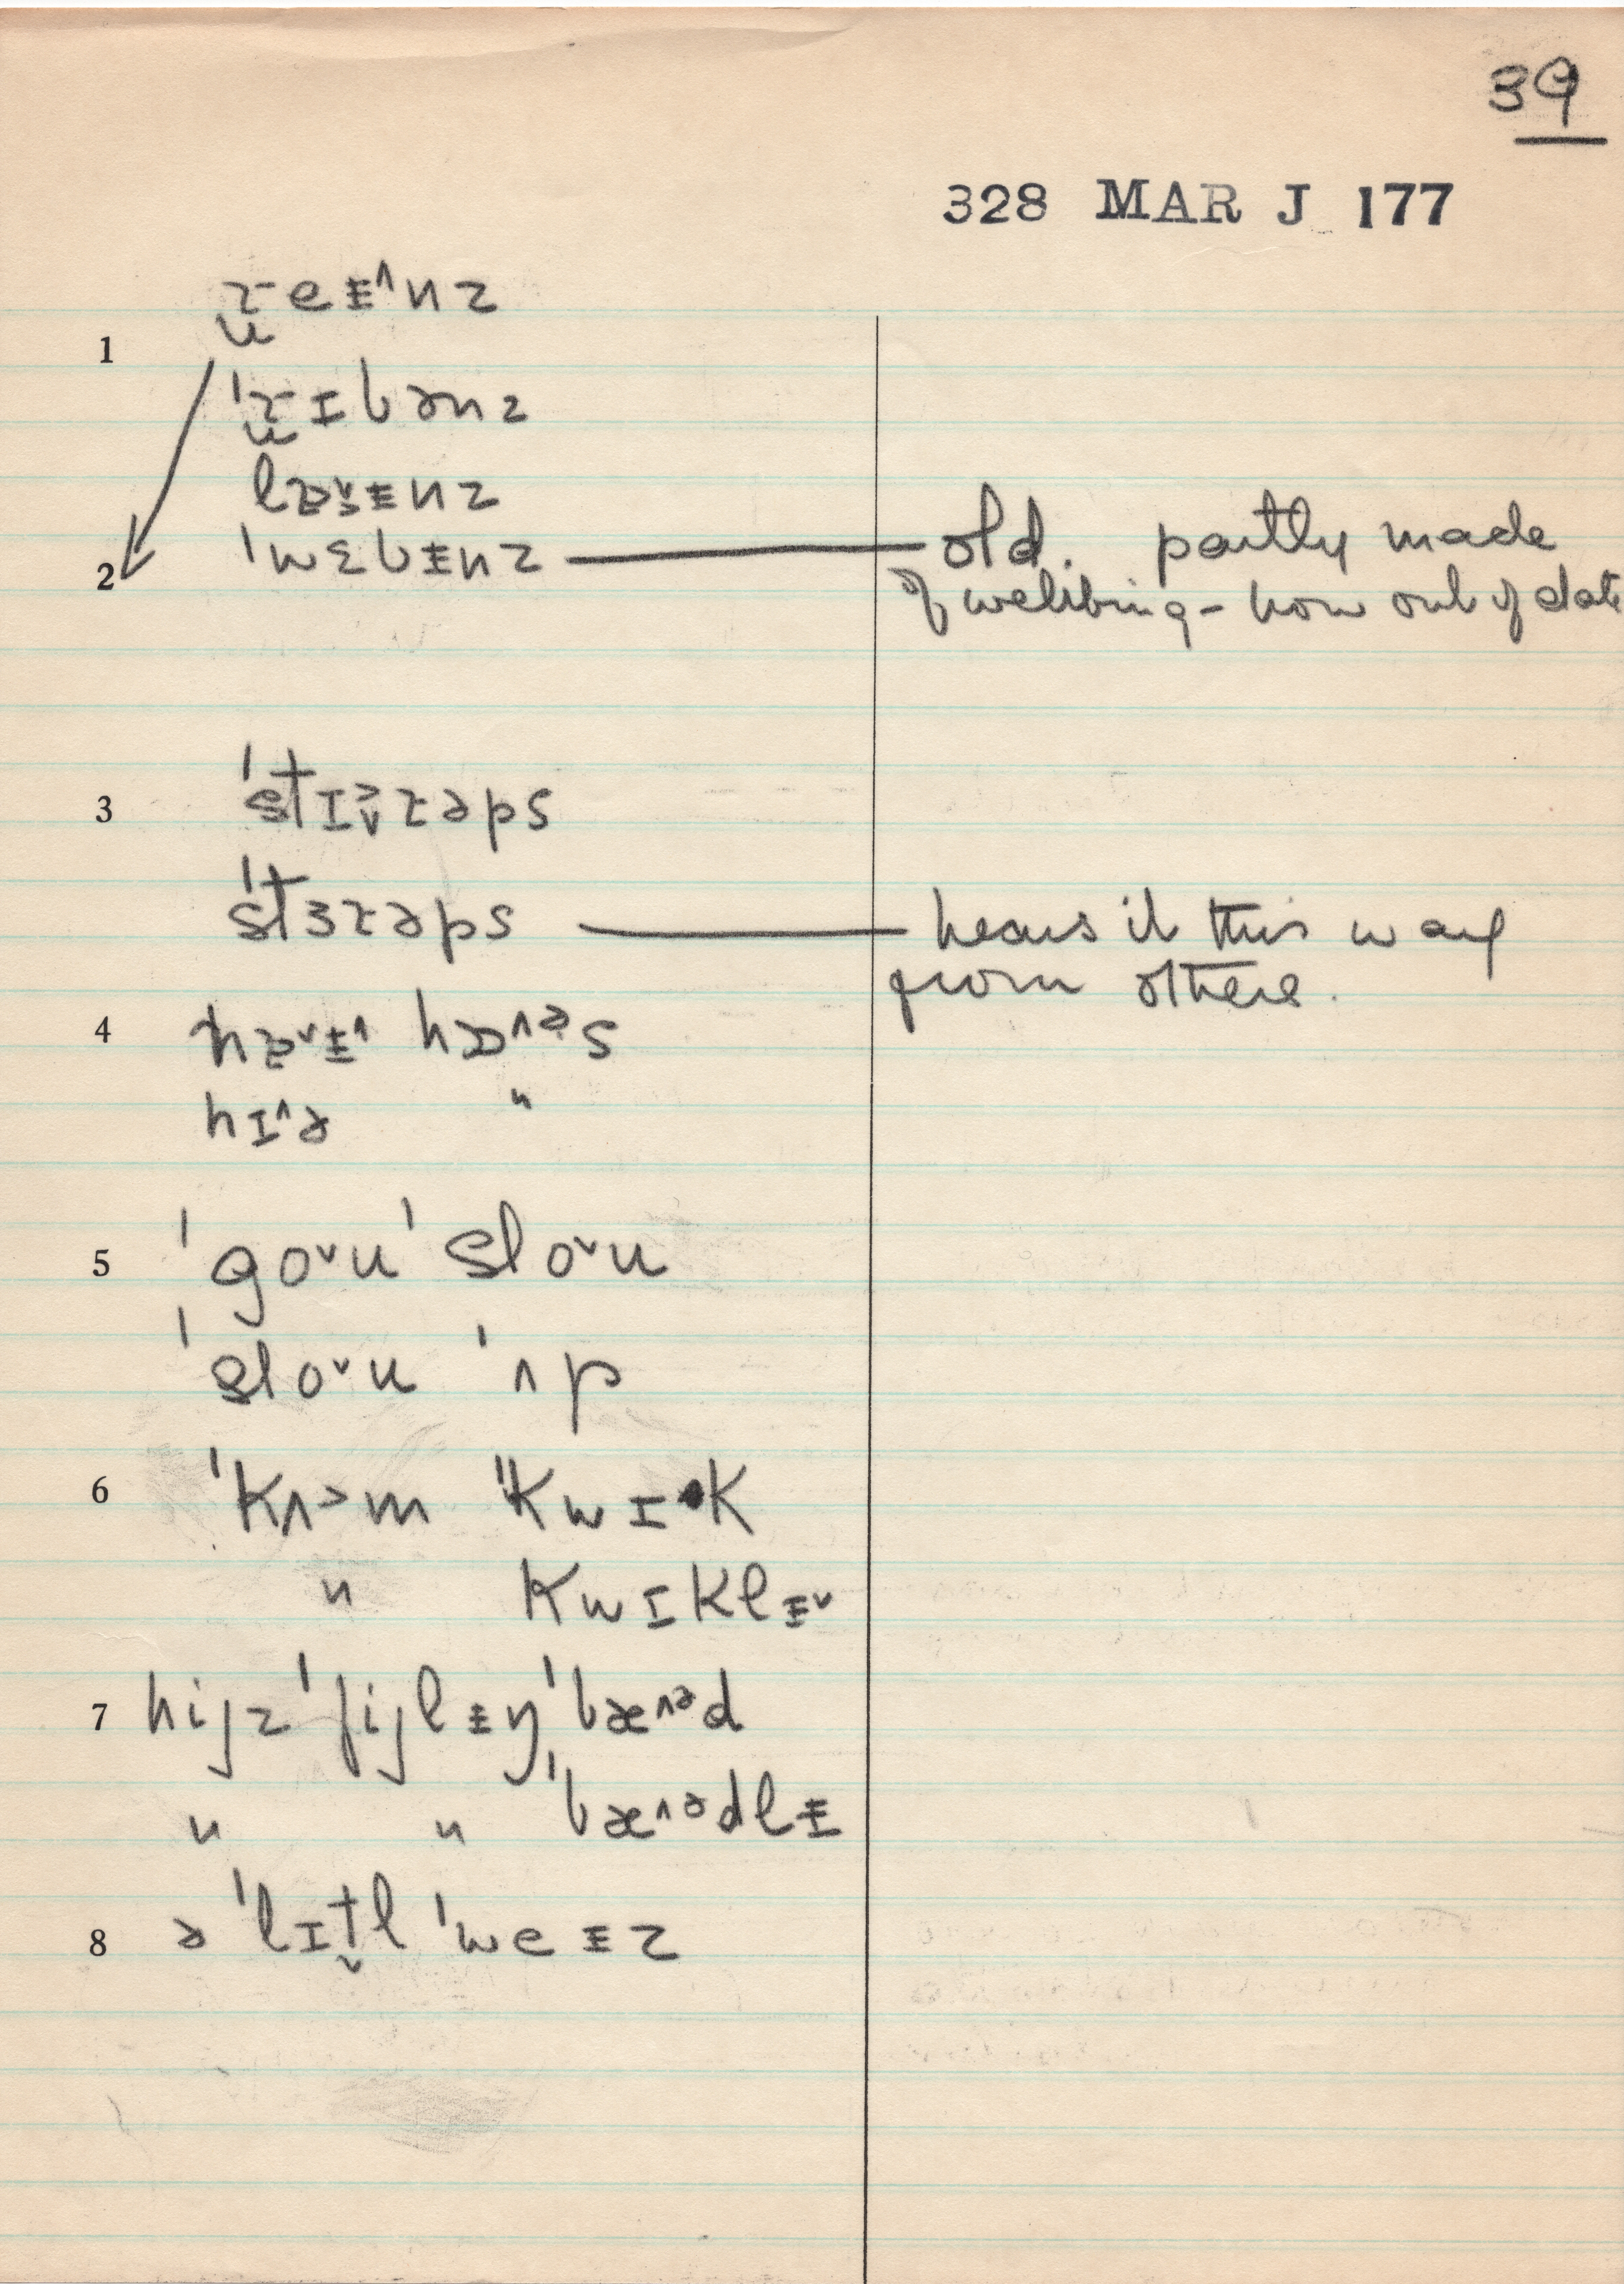 39
328 MAR J 177
ɹ̫eɨ^nz
1
ˈɹ̫ɪbənz
lɒ̜ˇɨnz
ˈwɛbɨnz — old. partly made
2
of webbing - now out of date
3 ˈstɪɚ̌ɹəps
ˈstɜɹəps — hears it this way
from others.
4 hɒ̜ˇɨ^ hɒ^ᵊs
hɪ^ə "
5 ˈgoˇu ˈsloˇu
ˈsloˇu ˈʌp
6 ˈkʌ˃m ˈkwɪ·k
" kwɪklɨˇ
7 hijz ˈfijlɨŋ ˈbæ^ᵊd
" " ˈbæ^ᵊdlɨ
8 ə ˈlɪt̬l ˈweɨz